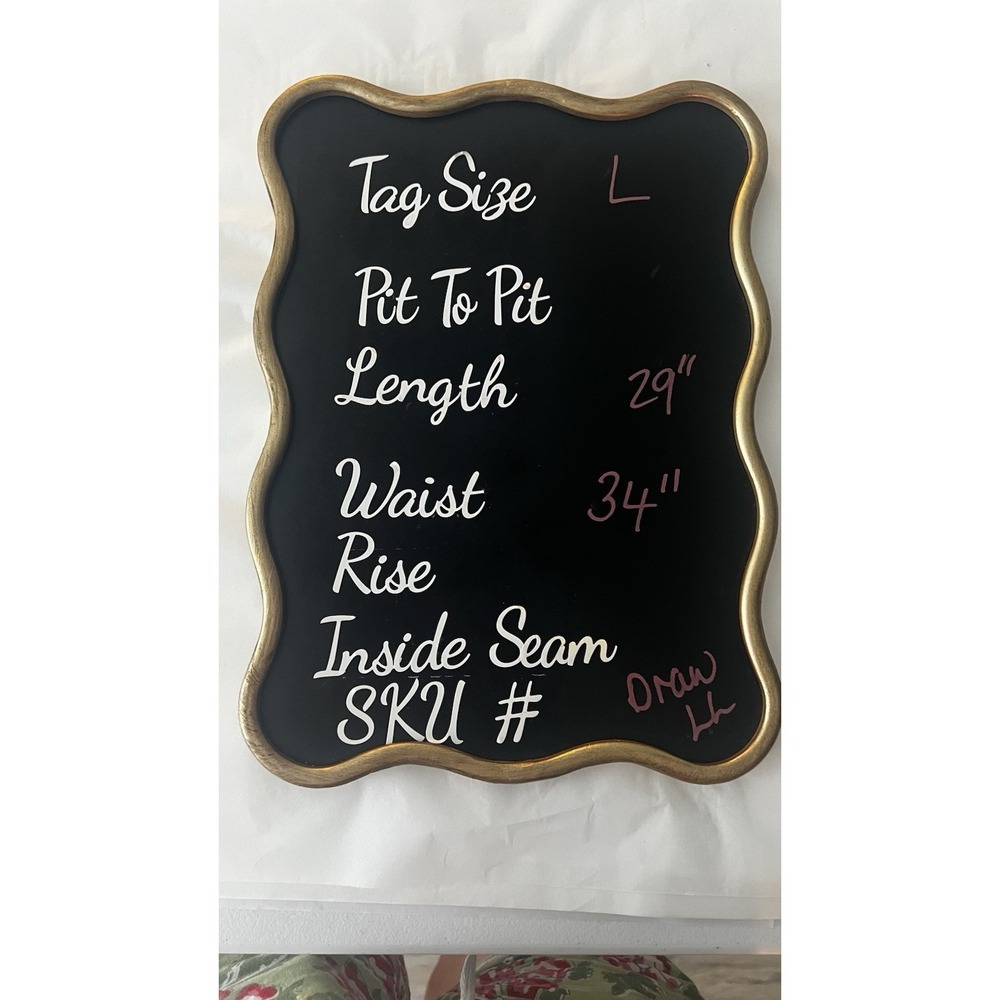 Tag Size L
Pit To Pit
Length 29"
Waist 34"
Rise
Inside Seam
SKU # Draw